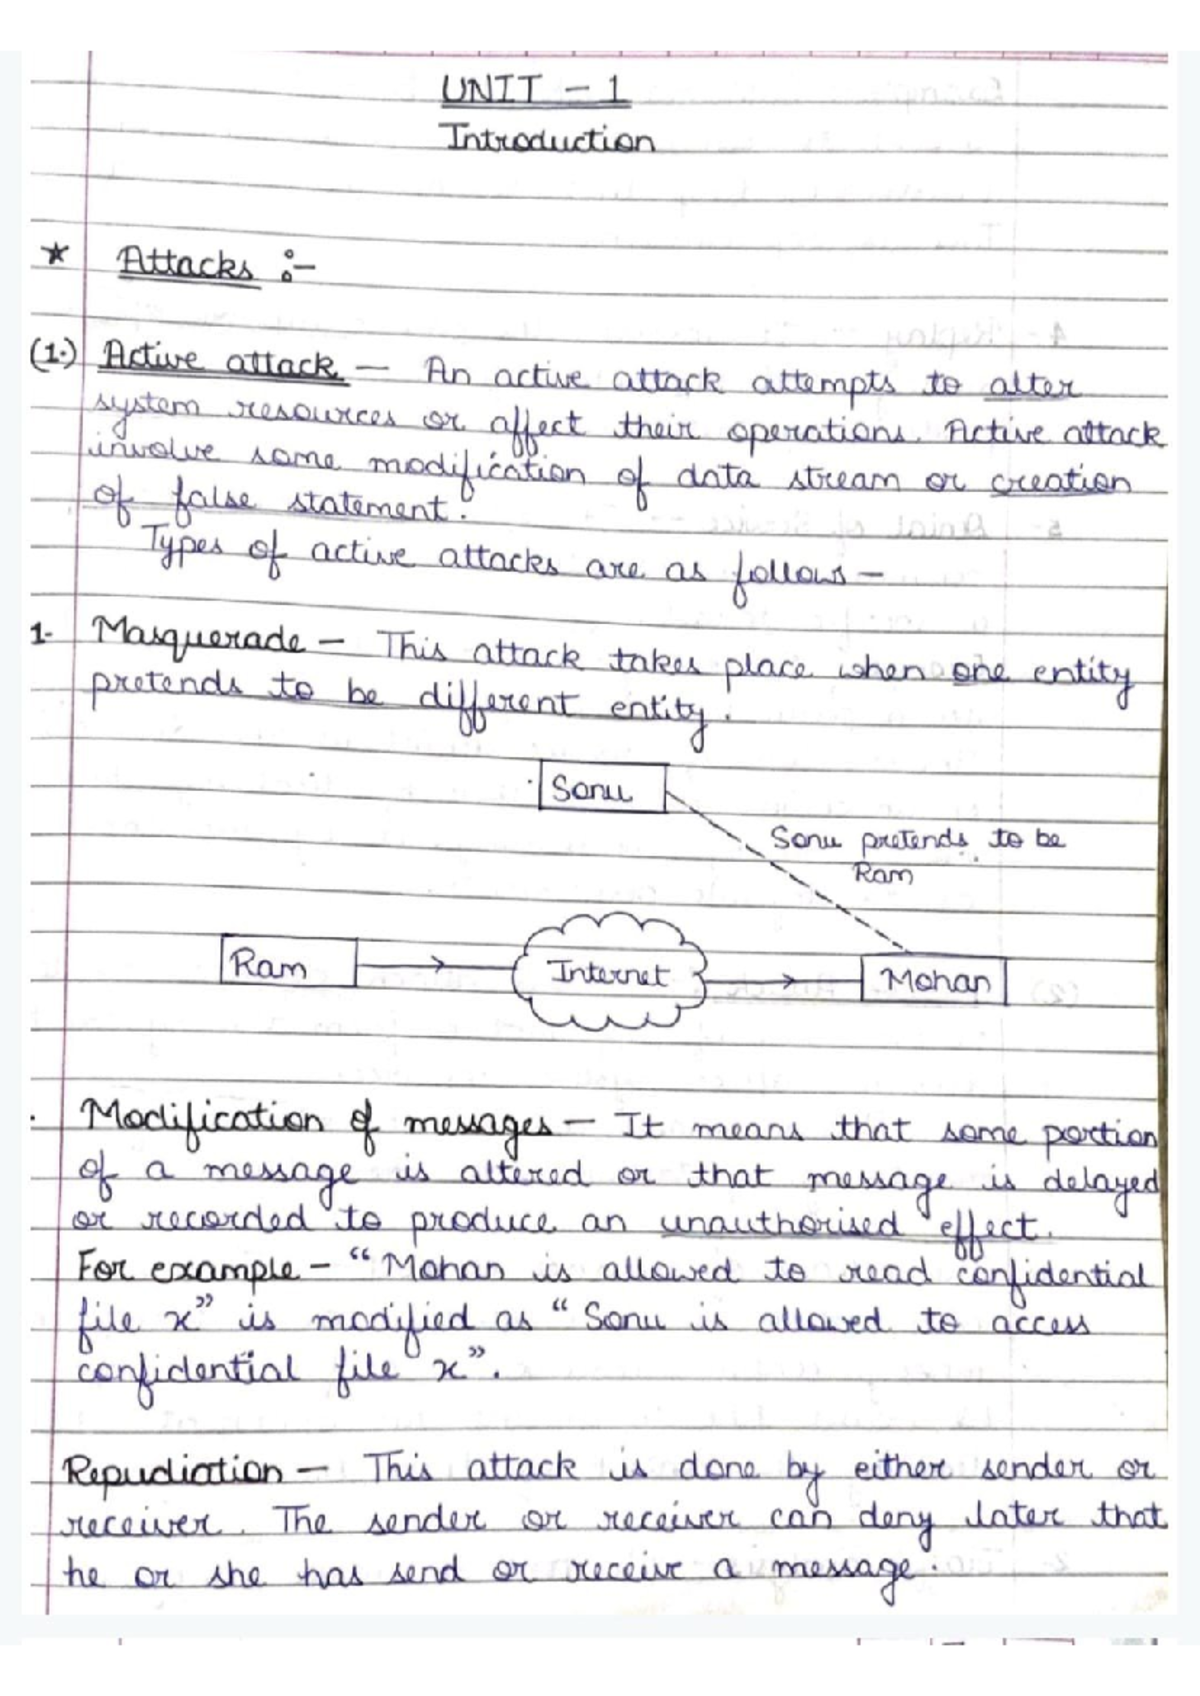 UNIT - 1
Introduction
* Attacks :-
(1.) Active attack — An active attack attempts to alter
system resources or affect their operations. Active attack
involve some modification of data stream or creation
of false statement.
Types of active attacks are as follows —
1- Masquerade — This attack takes place when one entity
pretends to be different entity.
Sonu
Sonu pretends to be
Ram
Ram
Internet
Mohan
Modification of messages — It means that some portion
of a message is altered or that message is delayed
or recorded to produce an unauthorised effect.
For example - "Mohan is allowed to read confidential
file x" is modified as "Sonu is allowed to access
confidential file x".
Repudiation — This attack is done by either sender or
receiver. The sender or receiver can deny later that
he or she has send or receive a message.